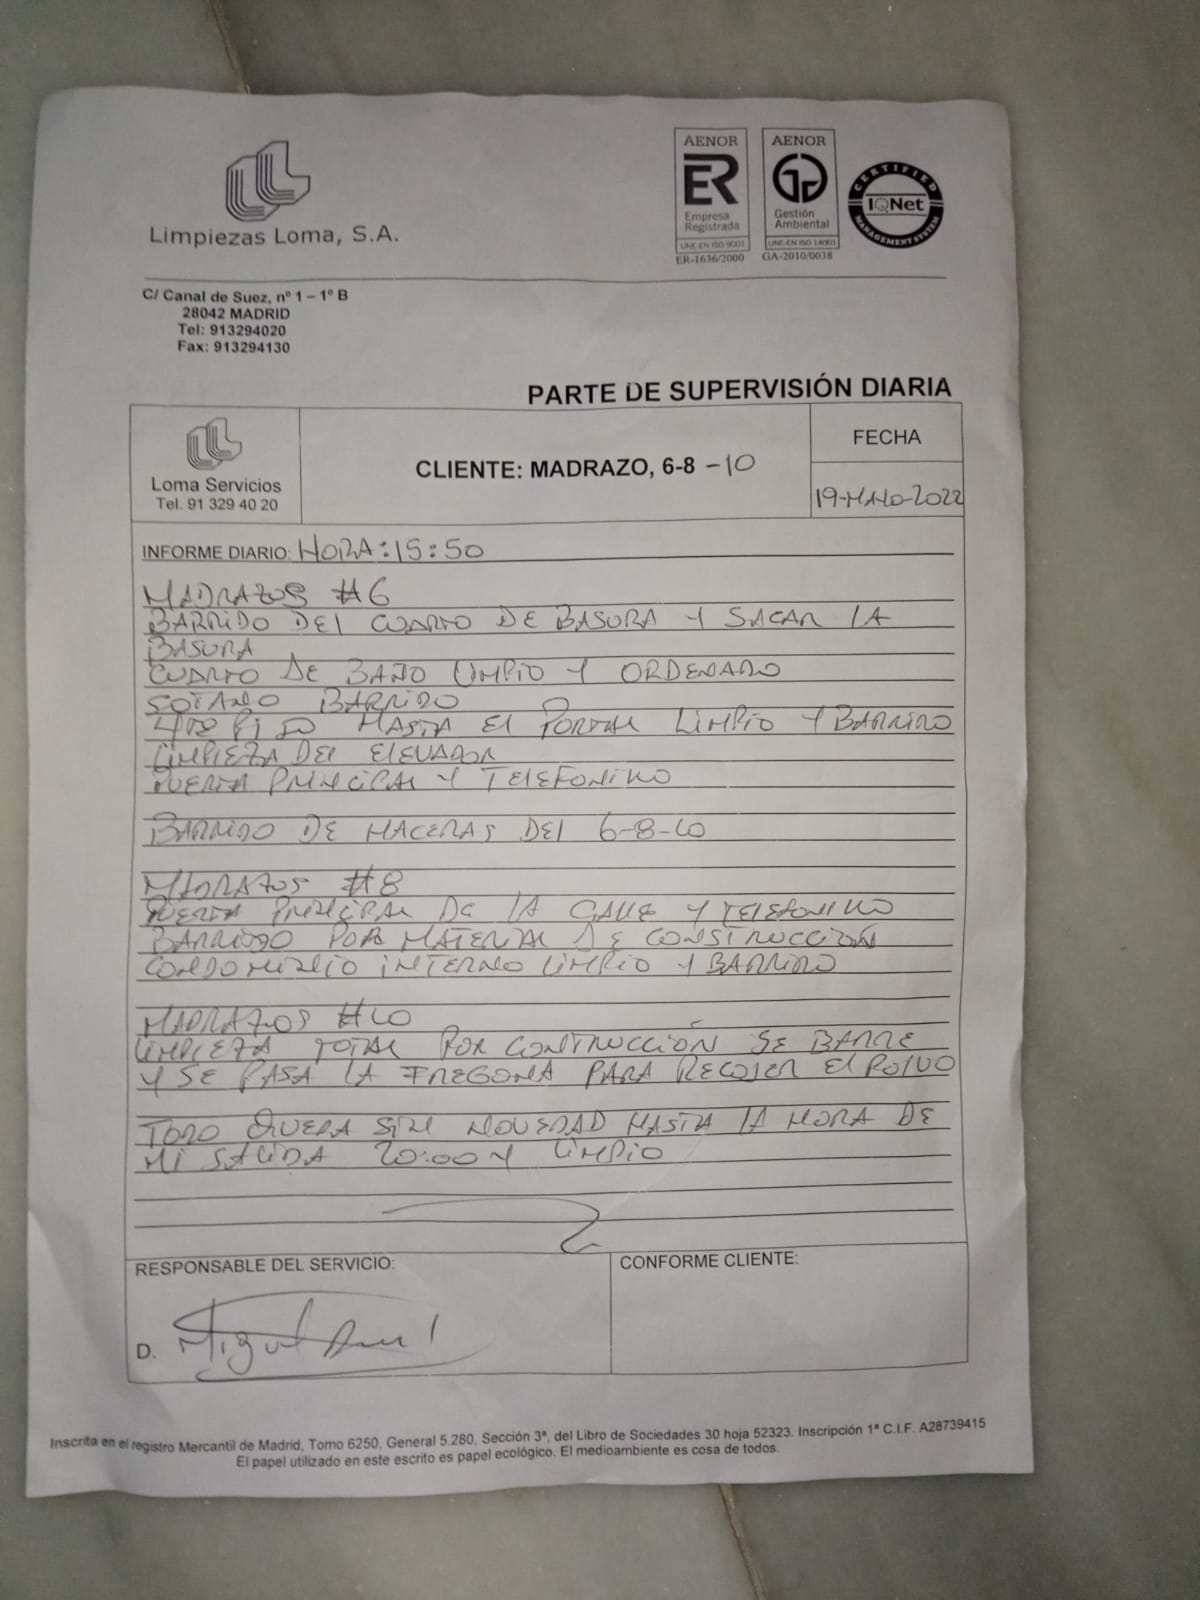 Limpiezas Loma, S.A.
AENOR
ER
Empresa
Registrada
UNE-EN ISO 9001
ER-1636/2000
AENOR
Gestión
Ambiental
UNE-EN ISO 14001
GA-2010/0038
CERTIFIED
IQNet
MANAGEMENT SYSTEM
C/ Canal de Suez, nº 1 – 1º B
28042 MADRID
Tel: 913294020
Fax: 913294130
PARTE DE SUPERVISIÓN DIARIA
Loma Servicios
Tel. 91 329 40 20
CLIENTE: MADRAZO, 6-8 -10
FECHA
19-MAYO-2022
INFORME DIARIO: HORA: 15:50
MADRAZOS #6
BARRIDO DEL CUARTO DE BASURA Y SACAR LA
BASURA
CUARTO DE BAÑO LIMPIO Y ORDENADO
SOTANO BARRIDO
4TO PISO HASTA El PORTAL LIMPIO Y BARRIDO
LIMPIEZA DEL ElEVADOR
PUERTA PRINCIPAL Y TELEFONILLO
BARRIDO DE MACERAS DEl 6-8-10
MADRAZOS #8
PUERTA PRINCIPAL DE LA CALLE Y TELEFONILLO
BARRIDO POR MATERIAL DE CONSTRUCCIÓN
CONDOMINIO INTERNO LIMPIO Y BARRIDO
MADRAZOS #10
LIMPIEZA TOTAL POR CONSTRUCCIÓN SE BARRE
Y SE PASA LA FREGONA PARA RECOJER El POLVO
TODO QUEDA SIN NOVEDAD HASTA LA HORA DE
MI SALIDA 20:00 Y LIMPIO
RESPONSABLE DEL SERVICIO:
CONFORME CLIENTE:
D. Miguel
Inscrita en el registro Mercantil de Madrid, Tomo 6250, General 5.280, Sección 3ª, del Libro de Sociedades 30 hoja 52323. Inscripción 1ª C.I.F. A28739415
El papel utilizado en este escrito es papel ecológico. El medioambiente es cosa de todos.